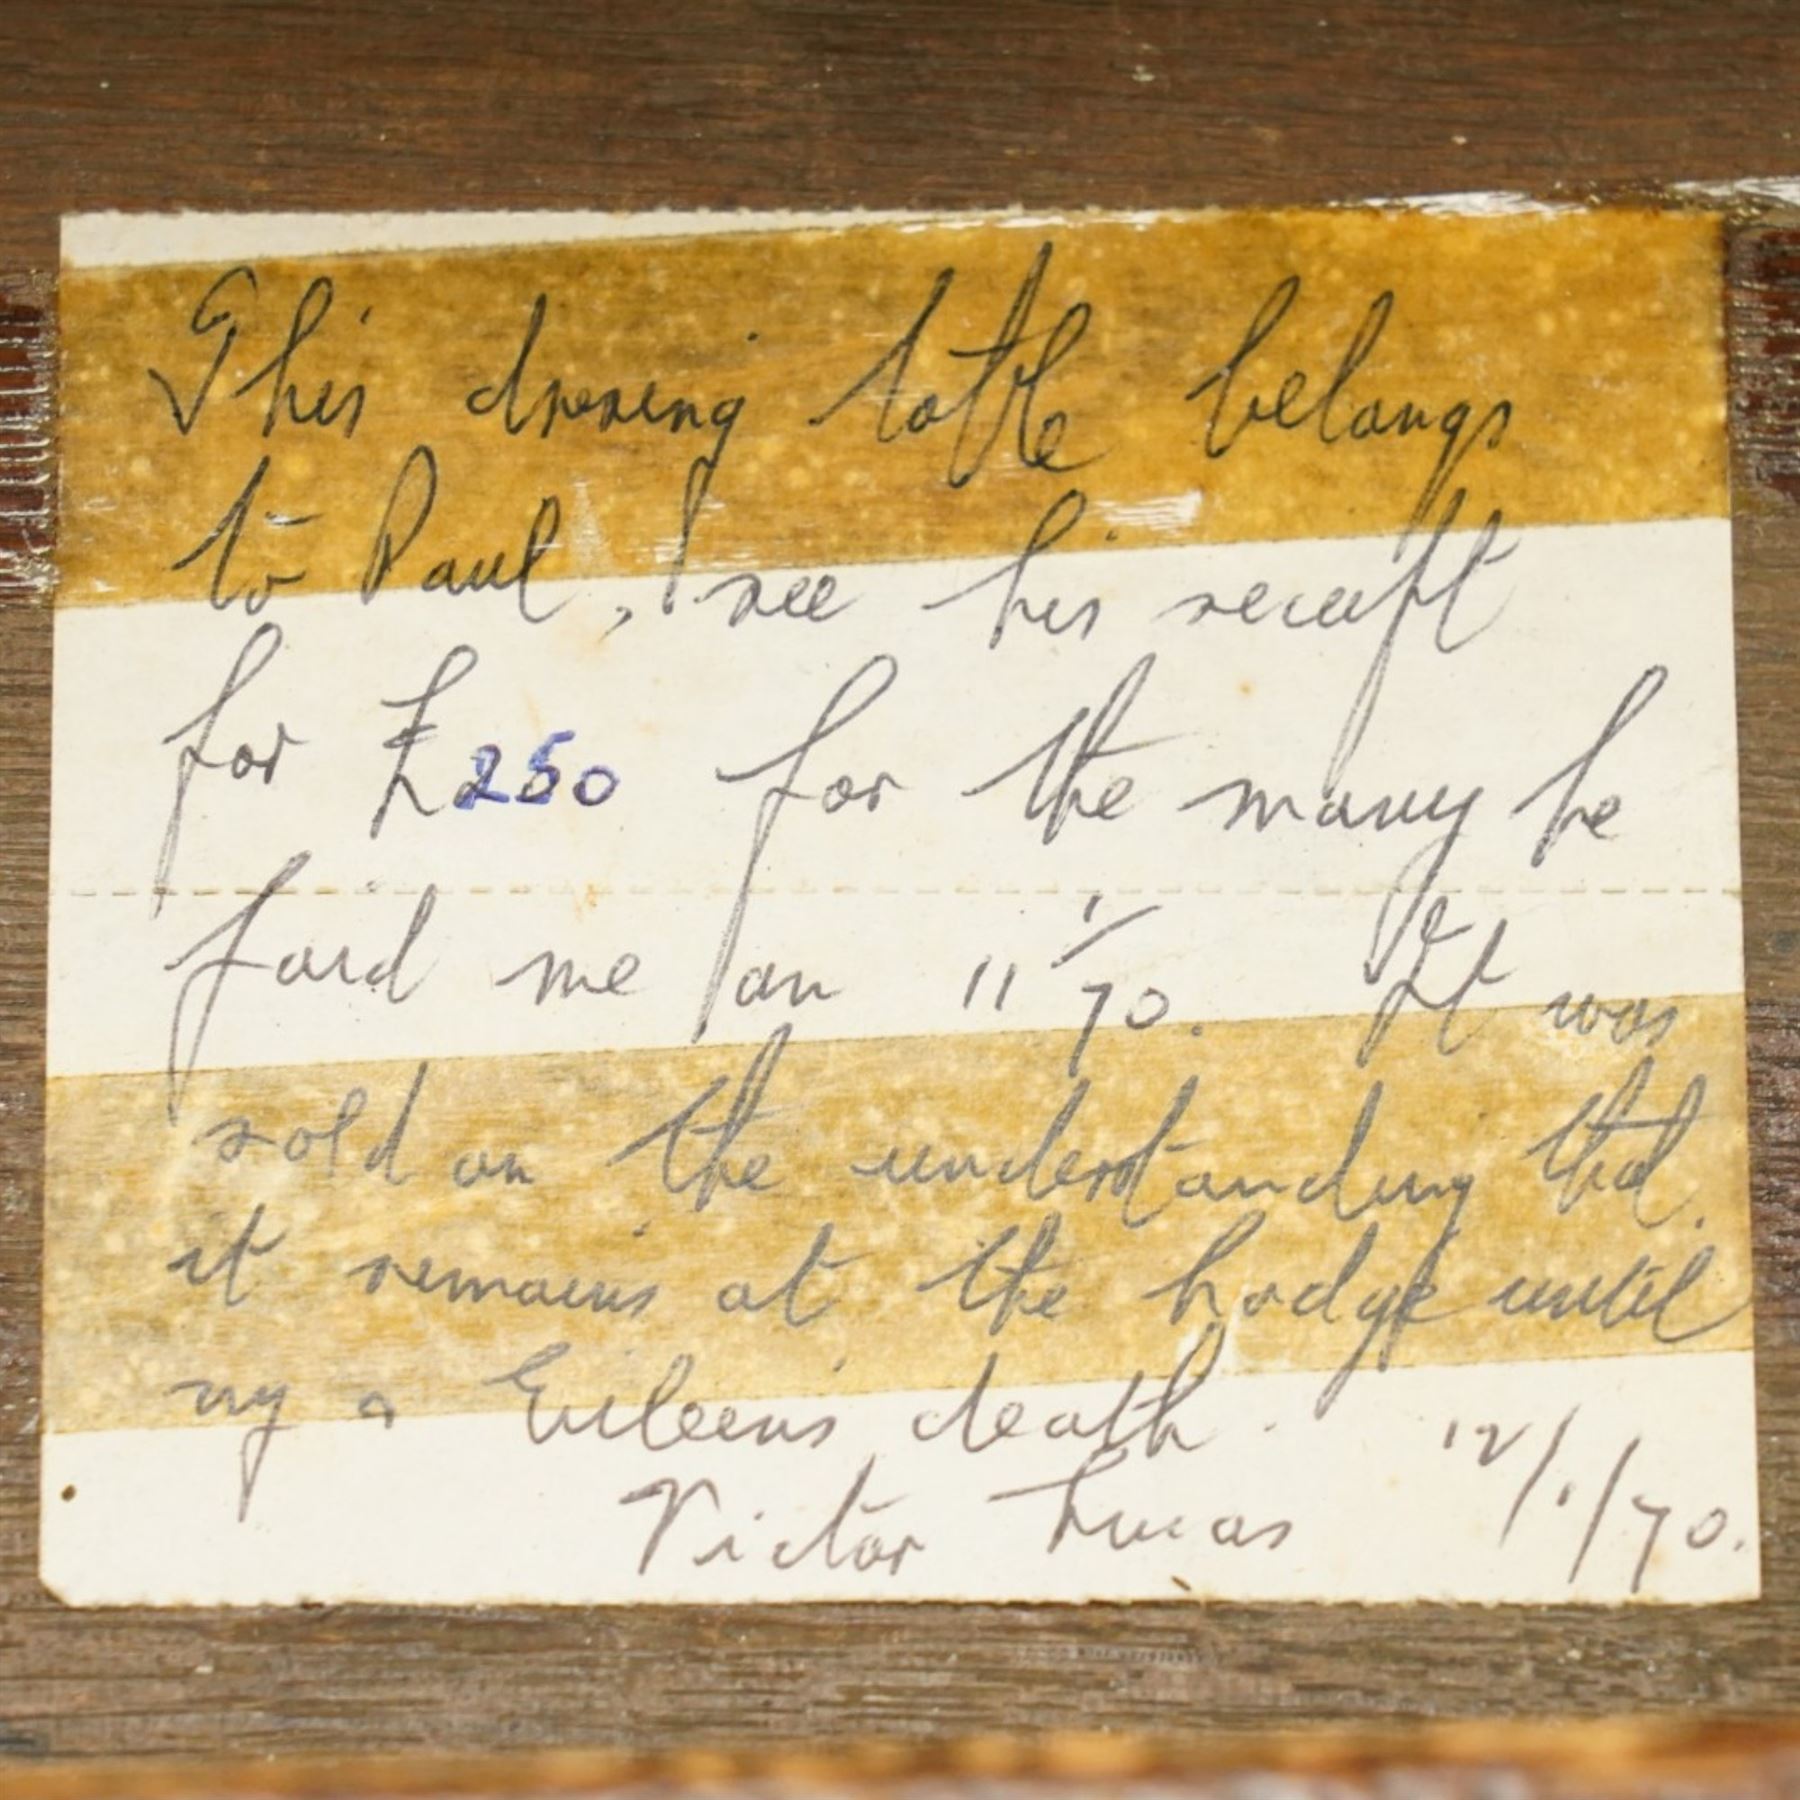 This dressing table belongs
to Paul, see his receipt
for £250 for the money he
paid me on 11/1/70. It was
sold on the understanding that
it remains at the Lodge until
my & Eileens death.
Victor Lucas 12/1/70.